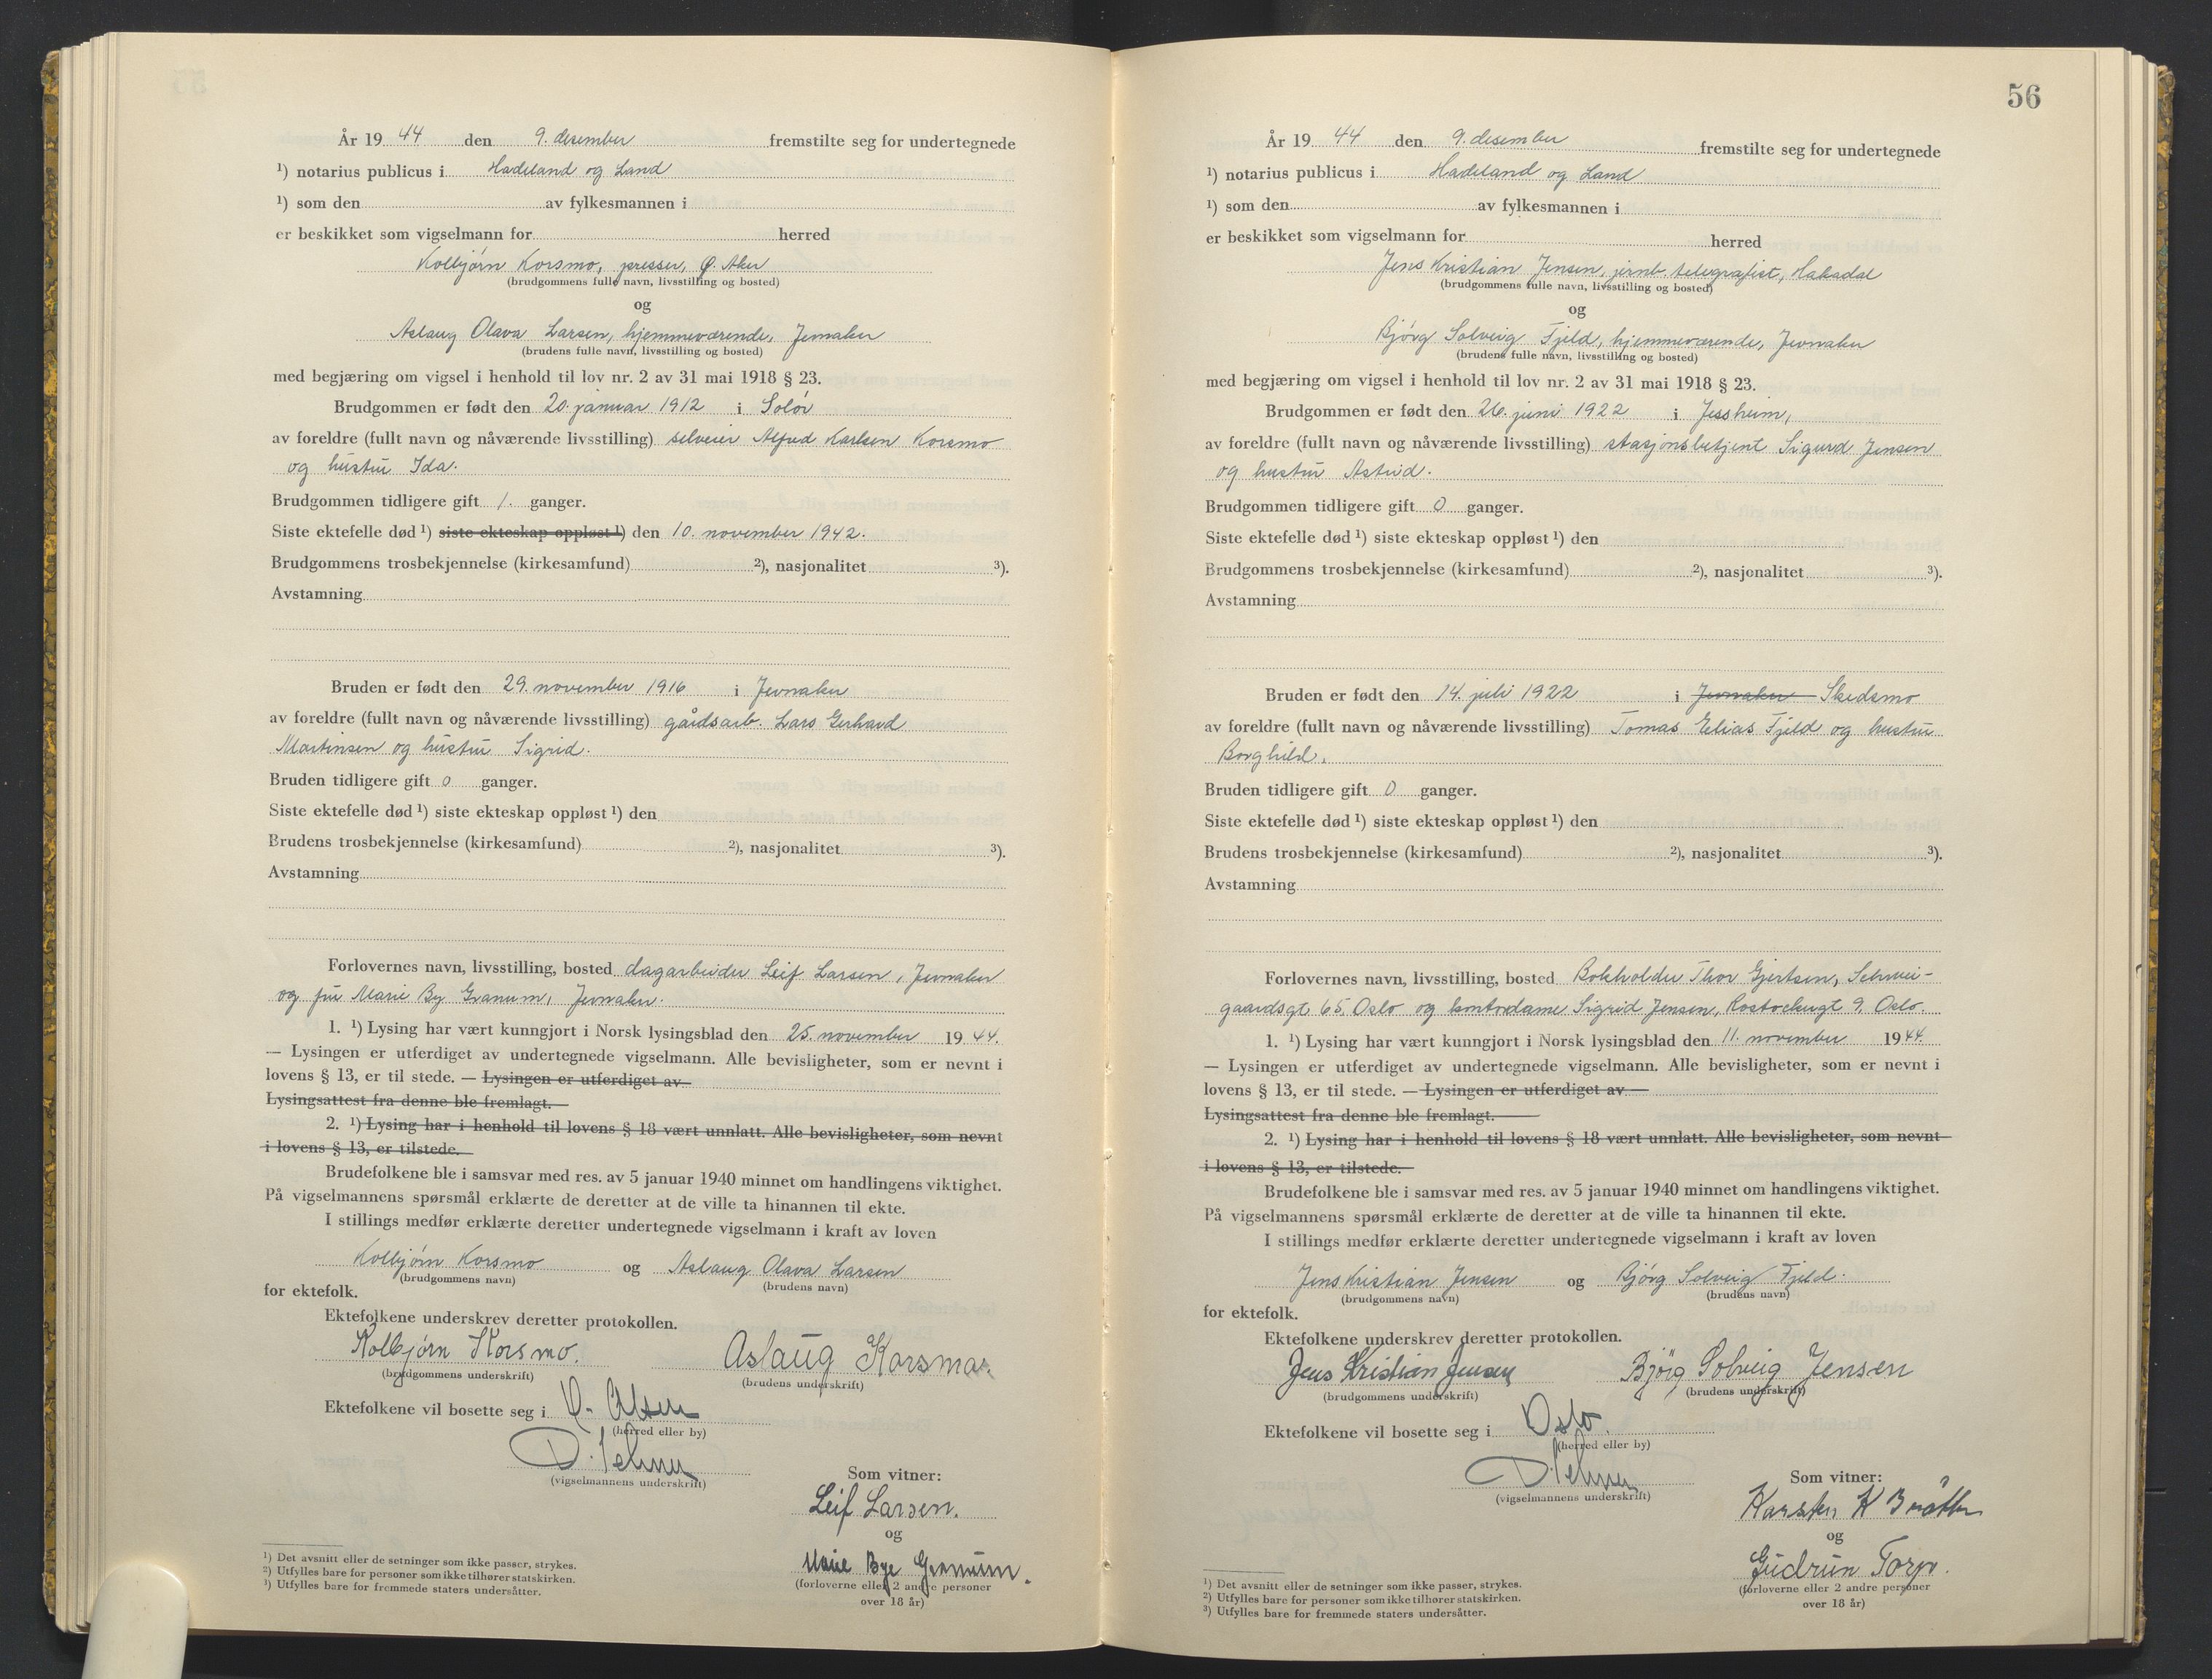 År 19 44 den 9. desember fremstilte seg for undertegnede
¹) notarius publicus i Hadeland og Land
¹) som den av fylkesmannen i
er beskikket som vigselmann for herred
Kolbjørn Korsmo, presser, Ø. Aker
(brudgommens fulle navn, livsstilling og bosted)
og
Aslaug Olava Larsen, hjemmeværende, Jevnaker
(brudens fulle navn, livsstilling og bosted)
med begjæring om vigsel i henhold til lov nr. 2 av 31 mai 1918 § 23.
Brudgommen er født den 20. januar 1912 i Solør
av foreldre (fullt navn og nåværende livsstilling) selveier Alfred Karlsen Korsmo
og hustru Ida.
Brudgommen tidligere gift 1. ganger.
Siste ektefelle død ¹) siste ekteskap oppløst ¹) den 10. november 1942.
Brudgommens trosbekjennelse (kirkesamfund) ²), nasjonalitet ³).
Avstamning
Bruden er født den 29. november 1916 i Jevnaker
av foreldre (fullt navn og nåværende livsstilling) gårdsarb. Lars Gerhard
Martinsen og hustru Sigrid.
Bruden tidligere gift 0 ganger.
Siste ektefelle død ¹) siste ekteskap oppløst ¹) den
Brudens trosbekjennelse (kirkesamfund) ²), nasjonalitet ³).
Avstamning
Forlovernes navn, livsstilling, bosted dagarbeider Leif Larsen, Jevnaker
og fru Marie By Granum, Jevnaker.
1. ¹) Lysing har vært kunngjort i Norsk lysingsblad den 25. november 19 44.
— Lysingen er utferdiget av undertegnede vigselmann. Alle bevisligheter, som er nevnt i
lovens § 13, er til stede. — Lysingen er utferdiget av
Lysingsattest fra denne ble fremlagt.
2. ¹) Lysing har i henhold til lovens § 18 vært unnlatt. Alle bevisligheter, som nevnt
i lovens § 13, er tilstede.
Brudefolkene ble i samsvar med res. av 5 januar 1940 minnet om handlingens viktighet.
På vigselmannens spørsmål erklærte de deretter at de ville ta hinannen til ekte.
I stillings medfør erklærte deretter undertegnede vigselmann i kraft av loven
Kolbjørn Korsmo og Aslaug Olava Larsen
(brudgommens navn) (brudens navn)
for ektefolk.
Ektefolkene underskrev deretter protokollen.
Kolbjørn Korsmo. Aslaug Korsmo.
(brudgommens underskrift) (brudens underskrift)
Ektefolkene vil bosette seg i Ø. Aker
(herred eller by)
(vigselmannens underskrift)
Som vitner:
Leif Larsen.
og
Marie Bye Granum.
(forloverne eller 2 andre personer
over 18 år)
¹) Det avsnitt eller de setninger som ikke passer, strykes.
²) Utfylles bare for personer som ikke tilhører statskirken.
³) Utfylles bare for fremmede staters undersåtter.
56
År 19 44 den 9. desember fremstilte seg for undertegnede
¹) notarius publicus i Hadeland og Land
¹) som den av fylkesmannen i
er beskikket som vigselmann for herred
Jens Kristian Jensen, jernb. telegrafist, Hakadal
(brudgommens fulle navn, livsstilling og bosted)
og
Bjørg Solveig Fjeld, hjemmeværende, Jevnaker
(brudens fulle navn, livsstilling og bosted)
med begjæring om vigsel i henhold til lov nr. 2 av 31 mai 1918 § 23.
Brudgommen er født den 26. juni 1922 i Jessheim,
av foreldre (fullt navn og nåværende livsstilling) stasjonsbetjent Sigurd Jensen
og hustru Astrid.
Brudgommen tidligere gift 0 ganger.
Siste ektefelle død ¹) siste ekteskap oppløst ¹) den
Brudgommens trosbekjennelse (kirkesamfund) ²), nasjonalitet ³).
Avstamning
Bruden er født den 14. juli 1922 i Jevnaker Skedsmo
av foreldre (fullt navn og nåværende livsstilling) Tomas Elias Fjeld og hustru
Borghild.
Bruden tidligere gift 0 ganger.
Siste ektefelle død ¹) siste ekteskap oppløst ¹) den
Brudens trosbekjennelse (kirkesamfund) ²), nasjonalitet ³).
Avstamning
Forlovernes navn, livsstilling, bosted Bokholder Thor Gjertsen, Schwei-
gaardsgt 65, Oslo og kontordame Sigrid Jensen, Rostockergt 9, Oslo.
1. ¹) Lysing har vært kunngjort i Norsk lysingsblad den 11. november 19 44.
— Lysingen er utferdiget av undertegnede vigselmann. Alle bevisligheter, som er nevnt i
lovens § 13, er til stede. — Lysingen er utferdiget av
Lysingsattest fra denne ble fremlagt.
2. ¹) Lysing har i henhold til lovens § 18 vært unnlatt. Alle bevisligheter, som nevnt
i lovens § 13, er tilstede.
Brudefolkene ble i samsvar med res. av 5 januar 1940 minnet om handlingens viktighet.
På vigselmannens spørsmål erklærte de deretter at de ville ta hinannen til ekte.
I stillings medfør erklærte deretter undertegnede vigselmann i kraft av loven
Jens Kristian Jensen og Bjørg Solveig Fjeld.
(brudgommens navn) (brudens navn)
for ektefolk.
Ektefolkene underskrev deretter protokollen.
Jens Kristian Jensen Bjørg Solveig Jensen
(brudgommens underskrift) (brudens underskrift)
Ektefolkene vil bosette seg i Oslo.
(herred eller by)
(vigselmannens underskrift)
Som vitner:
Karsten K Bråthen
og
Gudrun Torp.
(forloverne eller 2 andre personer
over 18 år)
¹) Det avsnitt eller de setninger som ikke passer, strykes.
²) Utfylles bare for personer som ikke tilhører statskirken.
³) Utfylles bare for fremmede staters undersåtter.